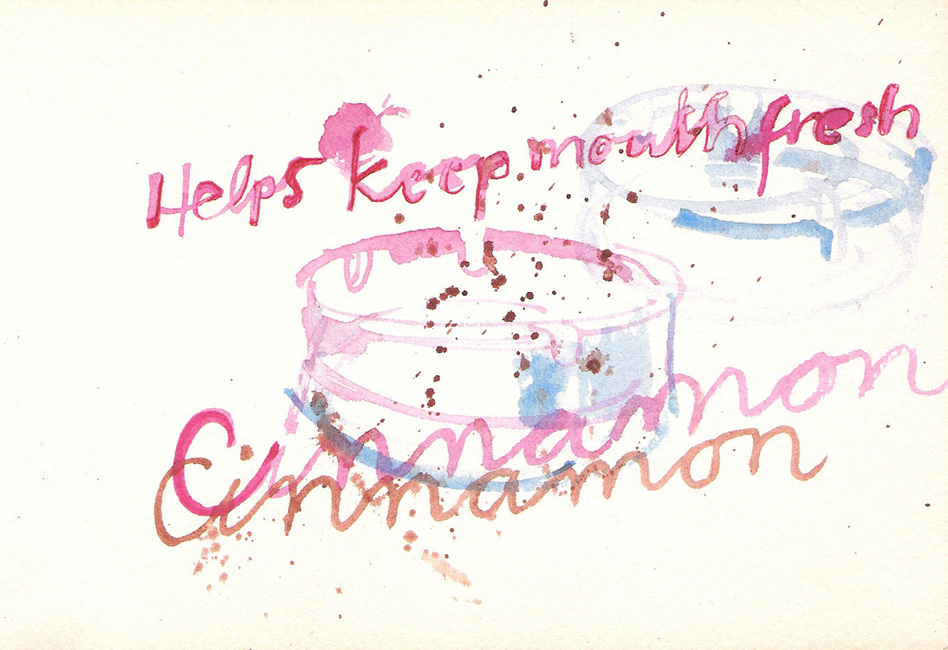 Helps keep mouth fresh
Cinnamon
Cinnamon